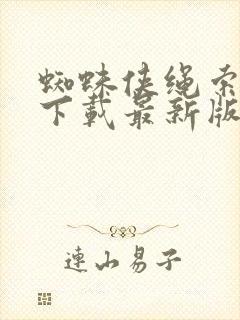 蜘蛛侠绳索
下载最新版
连山易子